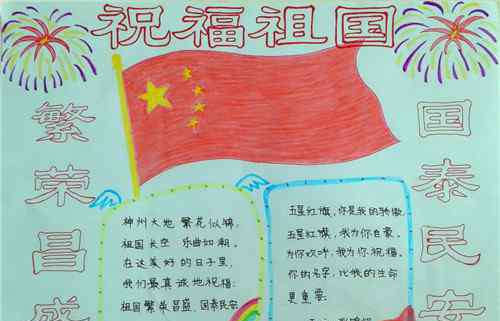 祝福祖国
繁荣昌盛
国泰民安
神州大地 繁花似锦,
祖国长空 乐曲如潮。
在这美好的日子里,
我们最真诚地祝福:
祖国繁荣昌盛,国泰民安
五星红旗,你是我的骄傲
五星红旗,我为你自豪。
为你欢呼,我为你祝福。
你的名字,比我的生命
更重要